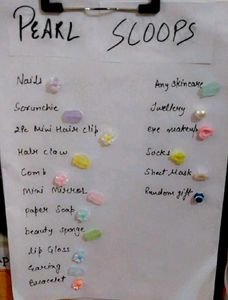 PEARL SCOOPS
Nails
Scrunchie
2Pc Mini Hair clip
Hair claw
Comb
Mini Mirror
Paper Soap
beauty sponge
Lip Gloss
Earing
Bracelet
Any Skincare
Jwellery
eye makeup
Socks
Sheet Mask
Random gift